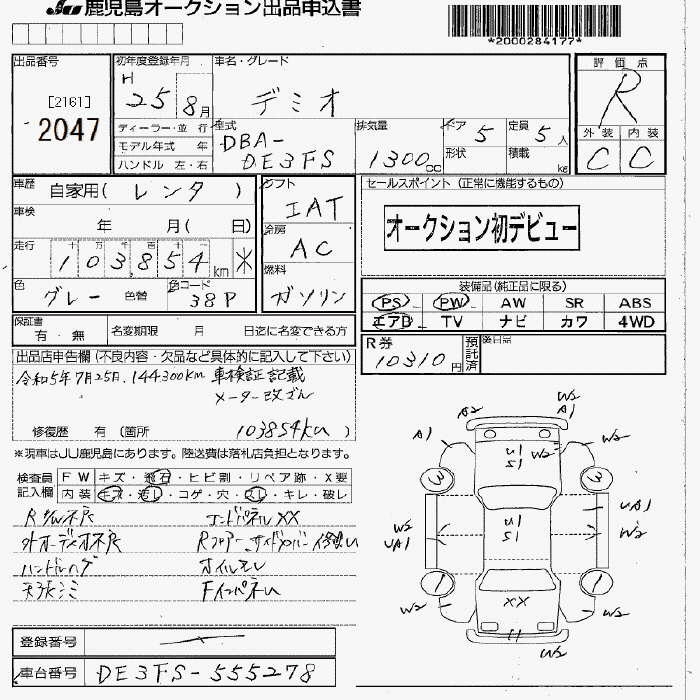 鹿児島オークション出品申込書
*2000284177*
出品番号
[2161]
2047
初年度登録年月
H 25 8月
車名・グレード
デミオ
ディーラー・並 行
モデル年式 年
ハンドル 左・右
型式
DBA-
DE3FS
排気量
1300cc
ドア 5
形状
定員 5人
積載 kg
評価点
R
外装 内装
C C
車歴 自家用(レンタ)
車検 年 月( 日)
走行 十 万 千 百 十
103,854km ※
色 グレー 色替
色コード 38P
シフト
IAT
冷房
AC
燃料
ガソリン
セールスポイント (正常に機能するもの)
オークション初デビュー
装備品(純正品に限る)
PS PW AW SR ABS
エアB TV ナビ カワ 4WD
R券
10310円
預託済
後日品
保証書
有 無
名変期限 月 日迄に名変できる方
出品店申告欄(不良内容・欠品など具体的に記入して下さい)
令和5年7月25日、144300km 車検証記載
メーター改ざん
修復歴 有 (箇所 103854km )
※現車はJU鹿児島にあります。陸送費は落札店負担となります。
検査員記入欄
FW キズ・飛石・ヒビ割・リペア跡・X要
内装 キズ・汚レ・コゲ・穴・スレ・キレ・破レ
エンドパネルXX
外オーディオ不良 Rフロアー サイドメンバー修理
ハンドルハゲ オイルモレ
天張シミ
A2 W2
A1 W1
A1 W2
U1
S1
W2
3 3
W2 UA1
UA1 W2
U1
S1
1 1
W2 W2
XX
W2
登録番号
車台番号 DE3FS-555278